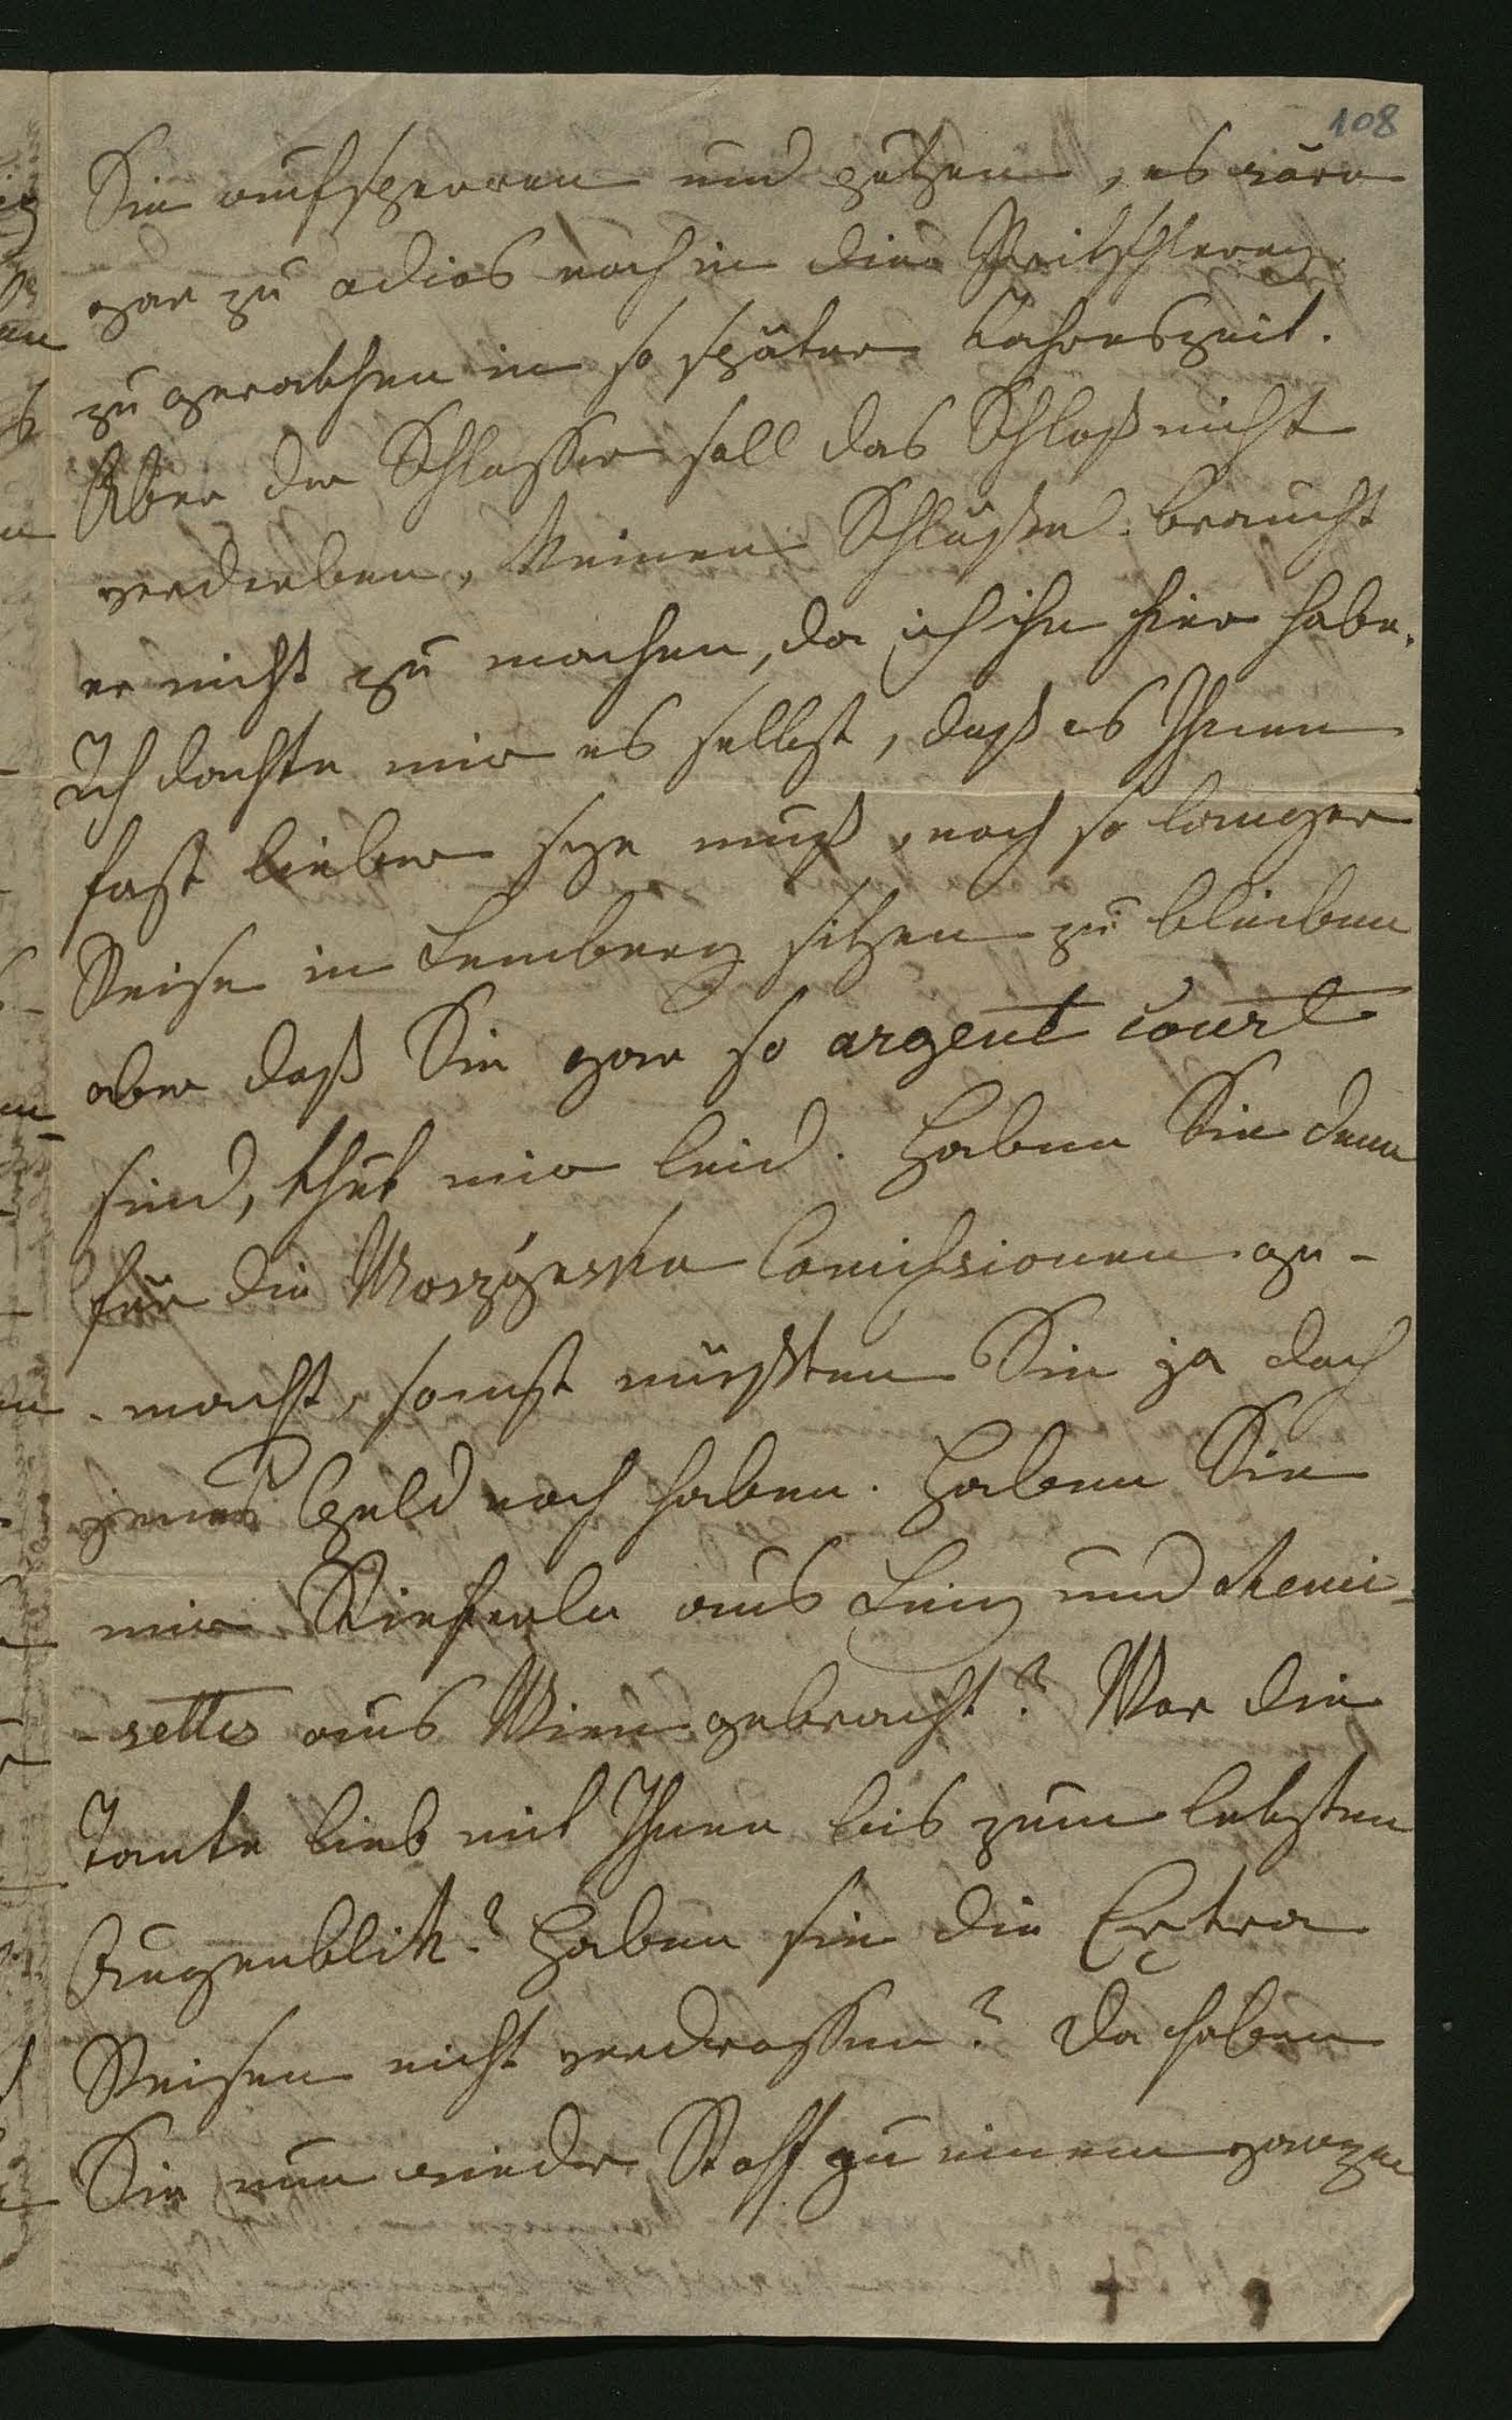 108
Sie aufsperren und putzen, es wäre
gar zu odios noch in diese
zu gerathen in so später Jahreszeit.
Aber der Schlosser soll das Schloß nicht
verderben, keinen Schlüssel braucht
er nicht zu machen, da ich ihn hier habe.
Ich dachte mir es selbst, daß es Ihnen
fast lieber seyn muß, nach so langer
Reise in Lemberg sitzen zu bleiben
aber daß Sie gar so argent court
sind, thut mir leid. Haben Sie denn
für die Comissionen ge-
macht, sonst müßten Sie ja doch
jenes Geld noch haben. Haben Sie
mir aus Linz und Chemi-
-settes aus Wien gebracht? War die
Tante lieb mit Ihnen bis zum letzten
Augenblik? Haben sie die Extra
Reisen nicht verdrossen? Da haben
Sie nun wieder Stoff zu einem ganzen